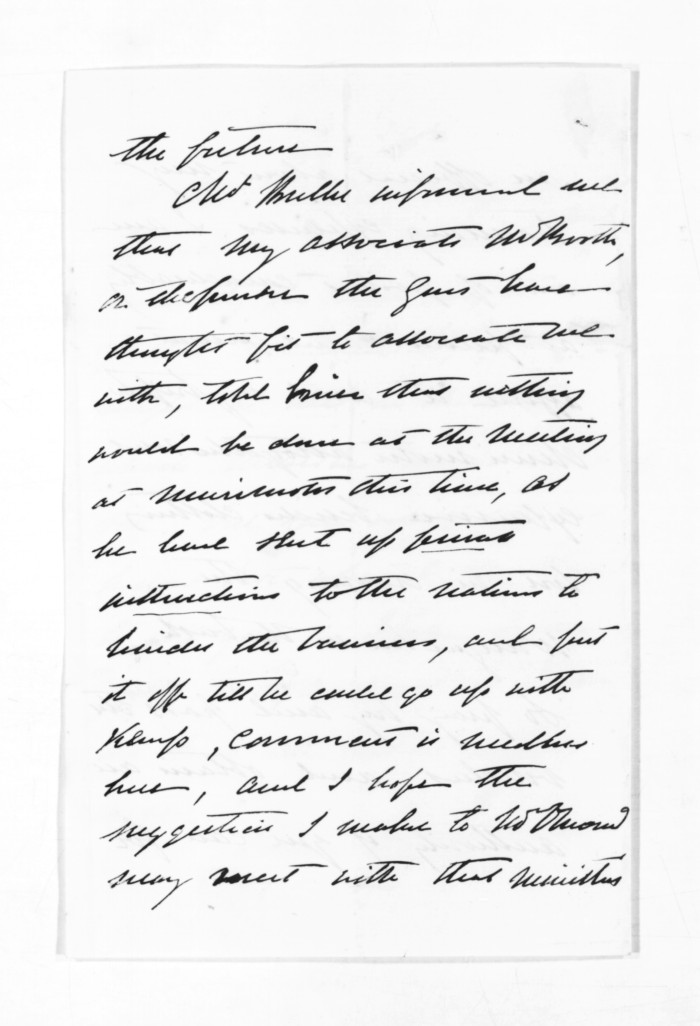 the future
Mr Buller informed me
that my associate Mr Booth,
or whichever the Govt have
thought fit to associate me
with, told him that nothing
would be done at the Meeting
at this time, as
he had sent up private
instructions to the natives to
hinder the business, and put
it off till he could go up with
Kemp, comment is needless
here, and I hope the
suggestion I make to Mr Ormond
may meet with that Ministers